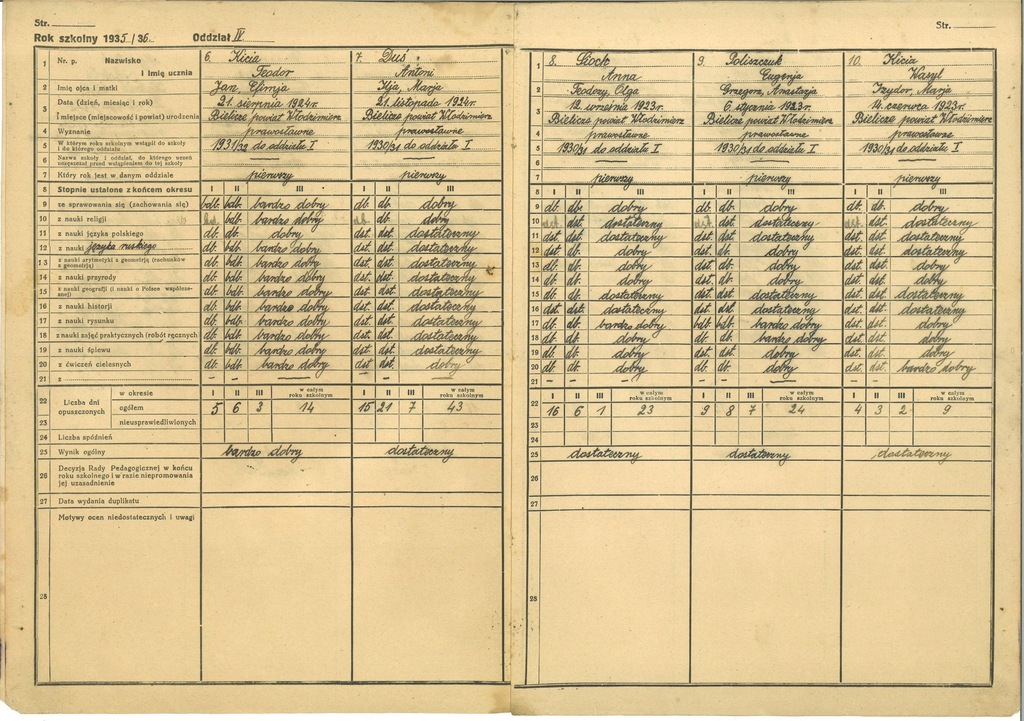 Str.
Str.
Rok szkolny 1935/36. Oddział IV
1 Nr. p. Nazwisko i imię ucznia
6. Kicia Teodor
7. Duś Antoni
8. Anna
9. Poliszczuk Eugenja
10. Kicia Wasyl
2 Imię ojca i matki
Jan,
Ilja, Marja
Teodozy, Olga
Grzegorz, Anastazja
Izydor, Marja
3 Data (dzień, miesiąc i rok) i miejsce (miejscowość i powiat) urodzenia
21. sierpnia 1924r. Bielicze powiat Włodzimierz
21. listopada 1924r. Bielicze, powiat Włodzimierz
12. września 1923r. Bielicze powiat Włodzimierz
6 stycznia 1923r. Bielicze powiat Włodzimierz
14. czerwca 1923r. Bielicze powiat Włodzimierz
4 Wyznanie
prawosławne prawosławne prawosławne prawosławne prawosławne
5 W którym roku szkolnym wstąpił do szkoły i do którego oddziału
1931/32 do oddziału I 1930/31 do oddziału I 1930/31 do oddziału I 1930/31 do oddziału I 1930/31 do oddziału I
6 Nazwa szkoły i oddział, do którego uczeń uczęszczał przed wstąpieniem do tej szkoły
7 Który rok jest w danym oddziale
pierwszy pierwszy pierwszy pierwszy pierwszy
8 Stopnie ustalone z końcem okresu I II III I II III I II III I II III I II III
9 ze sprawowania się (zachowania się) bdb. bdb. bardzo dobry db. db. dobry db. db. dobry db. db. dobry db. db. dobry
10 z nauki religji bdb. bardzo dobry db. dobry dst. dostateczny dst. dostateczny dst. dostateczny
11 z nauki języka polskiego db. db. dobry dst. dst. dostateczny dst. dst. dostateczny dst. db. dobry dst. dst. dostateczny
12 z nauki języka ruskiego db. bdb. bardzo dobry dst. dst. dostateczny db. db. dobry dst. db. dobry dst. dst. dostateczny
13 z nauki arytmetyki z geometrją (rachunków z geometrją) db. bdb. bardzo dobry dst. dst. dostateczny db. db. dobry dst. db. dobry dst. db. dobry
14 z nauki przyrody db. bdb. bardzo dobry dst. dst. dostateczny db. db. dobry dst. db. dobry dst. db. dobry
15 z nauki geografji (i nauki o Polsce współczesnej) db. bdb. bardzo dobry dst. dst. dostateczny db. db. dostateczny dst. dst. dostateczny dst. dst. dostateczny
16 z nauki historji db. bdb. bardzo dobry dst. dst. dostateczny dst. dst. dostateczny dst. dst. dostateczny dst. dst. dostateczny
17 z nauki rysunku db. bdb. bardzo dobry dst. dst. dostateczny db. db. bardzo dobry bdb. bdb. bardzo dobry dst. db. dobry
18 z nauki zajęć praktycznych (robót ręcznych) db. bdb. bardzo dobry dst. dst. dostateczny db. db. dobry db. db. bardzo dobry dst. dst. dobry
19 z nauki śpiewu db. bdb. bardzo dobry dst. dst. dostateczny db. db. dobry dst. dst. dobry dst. dst. dobry
20 z ćwiczeń cielesnych db. bdb. bardzo dobry dst. dst. dobry db. db. dobry dst. dst. dobry dst. dst. bardzo dobry
21 z
22 Liczba dni opuszczonych w okresie I II III w całym roku szkolnym I II III w całym roku szkolnym I II III w całym roku szkolnym I II III w całym roku szkolnym I II III w całym roku szkolnym
ogółem 5 6 3 14 15 21 7 43 16 6 1 23 9 8 7 24 4 3 2 9
23 nieusprawiedliwionych
24 Liczba spóźnień
25 Wynik ogólny
bardzo dobry dostateczny dostateczny dostateczny dostateczny
26 Decyzja Rady Pedagogicznej w końcu roku szkolnego i w razie niepromowania jej uzasadnienie
27 Data wydania duplikatu
28 Motywy ocen niedostatecznych i uwagi